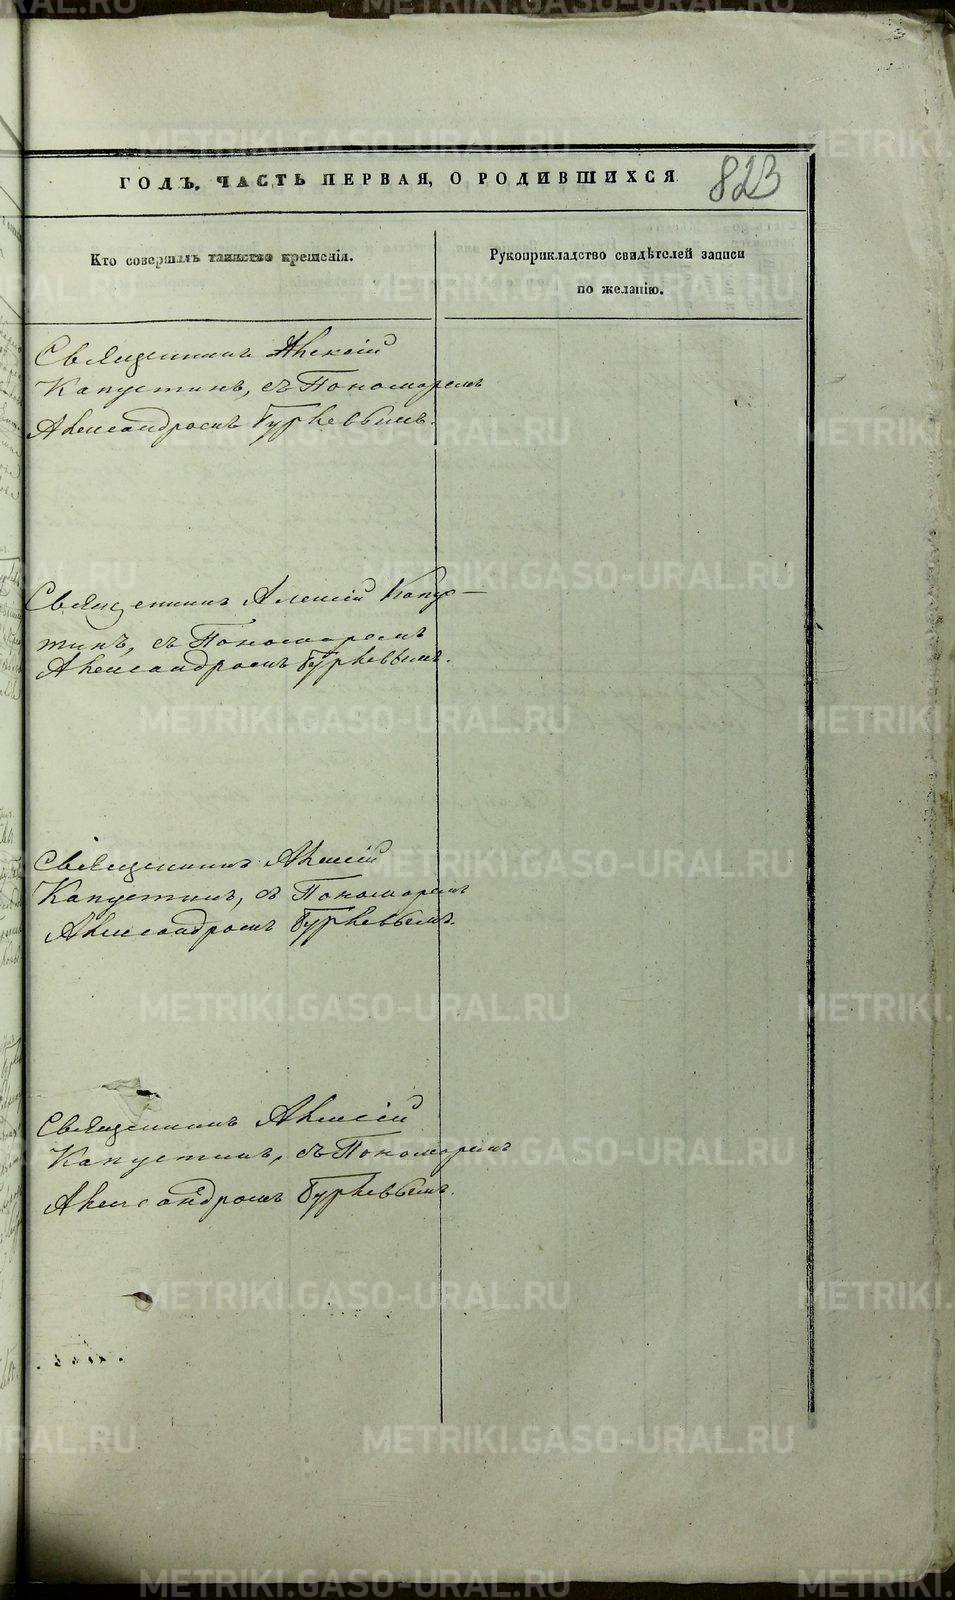 ГОДЪ, ЧАСТЬ ПЕРВАЯ, О РОДИВШИХСЯ
823
Кто совершалъ таинство крещенія.
Рукоприкладство свидѣтелей записи
по желанію.
Священникъ Алексій
Капустинъ, съ Пономаремъ
Александромъ Гурьевымъ.
Священникъ Алексій Капу-
тинъ, съ Пономаремъ
Александромъ Гурьевымъ.
Священникъ Алексій
Капустинъ, съ Пономаремъ
Александромъ Гурьевымъ.
Священникъ Алексій
Капустинъ, съ Пономаремъ
Александромъ Гурьевымъ.
METRIKI.GASO-URAL.RU